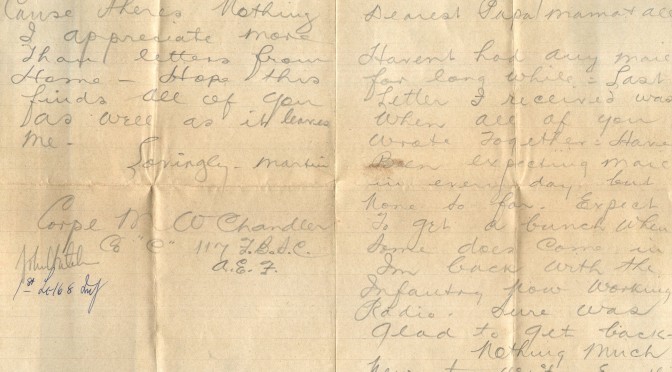 Cause theres Nothing
I appreciate more
Than letters from
Home - Hope this
finds all of you
as well as it leaves
me -
Lovingly - Martin
Corpl M W Chandler
Co "C" 117 F.B.S.C.
A.E.F.
1st Lt 168 Inf
Dearest Papa Mama & all
Havent had any mail
for long while - Last
Letter I received was
When all of you
Wrote Together. Have
Been expecting mail
in every day but
None so far. Expect
To get a bunch When
Some does Come in
I'm back with the
Infantry now Working
Radio. Sure was
Glad to get back -
Nothing much